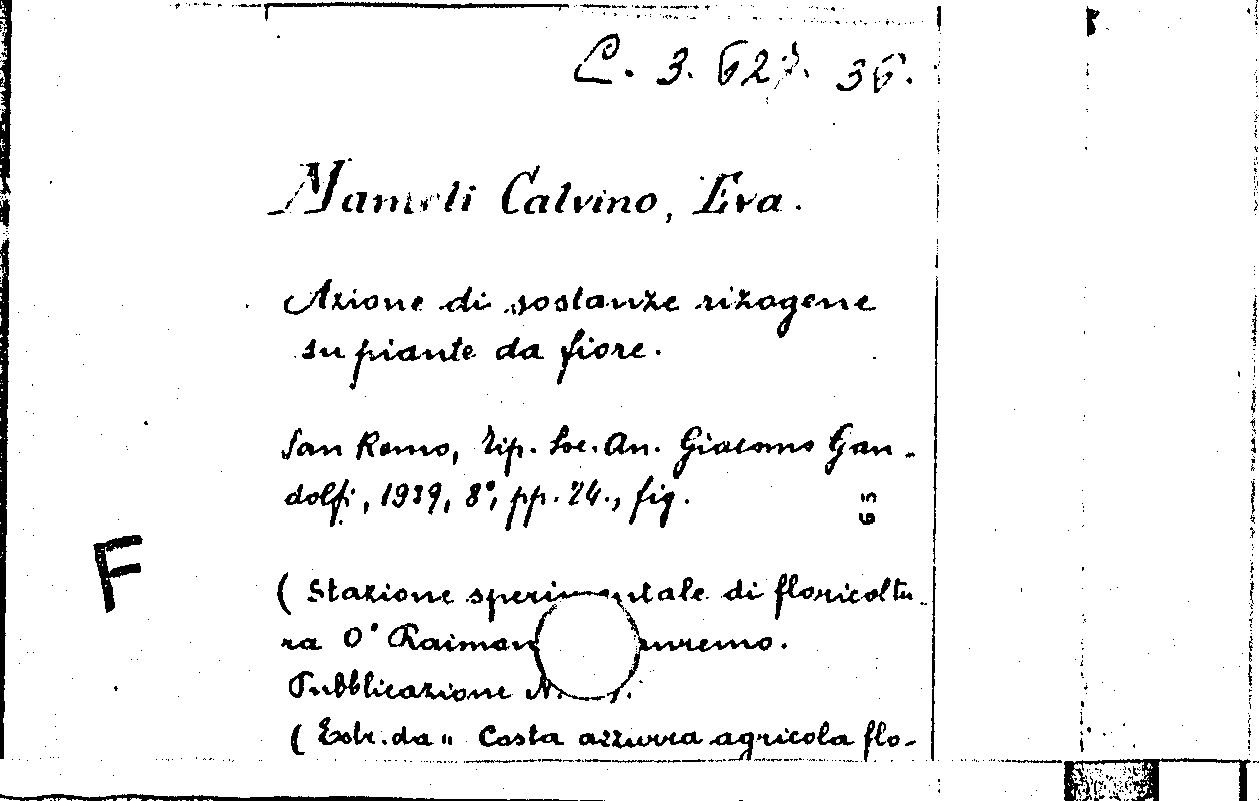 C. 3. 627. 36.
Mameli Calvino, Eva.
Azione di sostanze rizogene
su piante da fiore.
San Remo, Tip. Soc. An. Giacomo Gan-
dolfi, 1939, 8°, pp. 24., fig.
63
F
( Stazione sperimentale di floricoltu-
ra O° Raiman
nremo.
Pubblicazione N.
( Estr. da " Costa azzurra agricola flo-